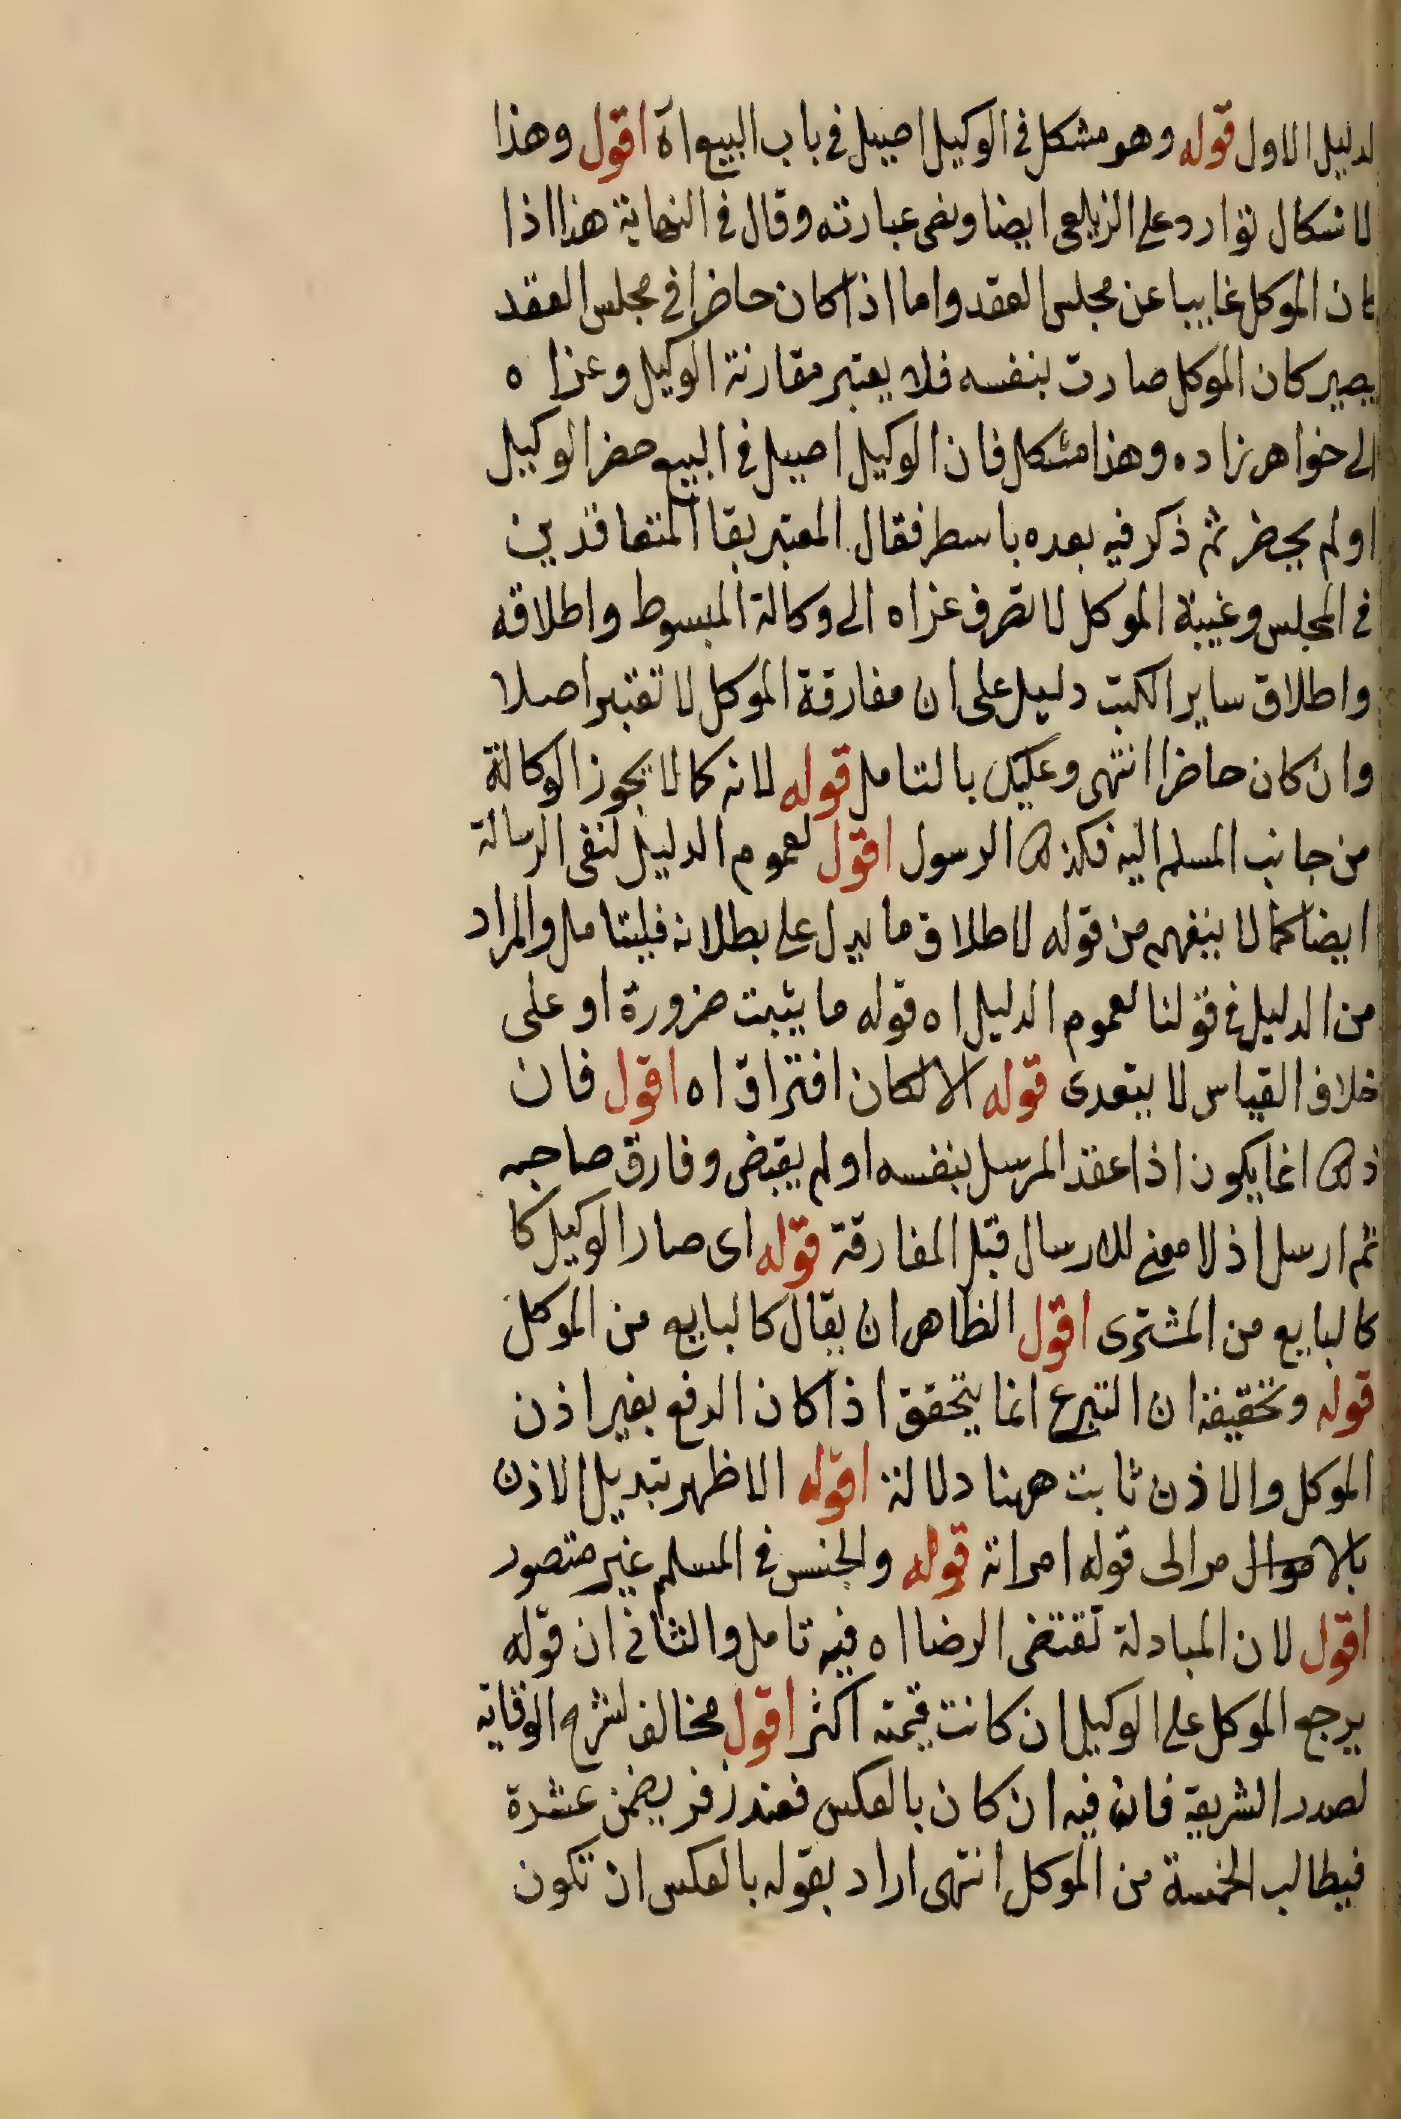 لدليل الاول قوله وهو مشكل في الوكيل اصيل في باب البيع اه اقول وهذا
لاشكال توارد على الزيلعى ايضا وفى عبارته وقال في النهاية هذا اذا
كان الموكل غايبا عن مجلس العقد واما اذا كان حاضرا في مجلس العقد
يصير كان الموكل صارت بنفسه فلا يعتبر مقارنة الوكيل وعزا ه
الى خواهر زاده وهذا مشكل فان الوكيل اصيل في البيع حضر الوكيل
اولم يحضر ثم ذكر فيه بعده باسطر فقال المعتبر بقا المتعاقدين
في المجلس وغيبة الموكل لا تضر فى عزاه الى وكالة المبسوط واطلاقه
واطلاق ساير الكتب دليل على ان مفارقة الموكل لا تعتبر اصلا
وان كان حاضرا انتهى وعليك بالتامل قوله لانه كما لا يجوز الوكالة
من جانب المسلم اليه فكذلك الرسول اقول لعموم الدليل لنفى الرسالة
ايضا كما لا ينفهم من قوله لاطلاق ما يدل على بطلانه فليتامل والمراد
من الدليل في قولنا لعموم الدليل اه قوله ما يثبت ضرورة او على
خلاف القياس لا يتعدى قوله الا لكان افتراق اه اقول فان
ذلك انما يكون اذا عقد المرسل بنفسه اولم يقبض وفارق صاحبه
ثم ارسل اذ لا معنى للارسال قبل المفارقة قوله اى صار الوكيل كا
كالبايع من المشترى اقول الظاهر ان يقال كالبايع من الموكل
قوله وتحقيقه ان التبرع انما يتحقق اذا كان الدفع بغير اذن
الموكل والاذن ثابت ههنا دلالة اقوله الاظهر تبديل الاذن
بالاموال مر الى قوله امراته قوله والجنس في المسلم غير متصور
اقول لان المبادلة تقتضى الرضا اه فيه تامل والثانى ان قوله
يرجع الموكل على الوكيل ان كانت قيمته اكثر اقول مخالف لشرح الوقاية
لصدر الشريعة فانه فيه ان كان بالعكس فعند زفر يضمن عشرة
فيطالب الخمسة من الموكل انتهى اراد بقوله بالعكس ان تكون